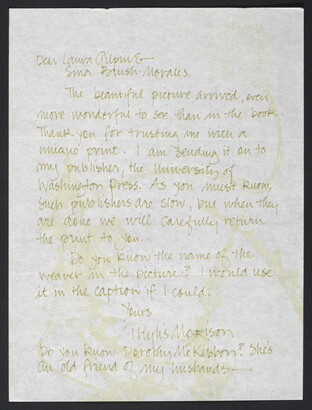 Dear Laura Gilpin &
Sina Brush-Morales,
The beautiful picture arrived, even
more wonderful to see than in the book.
Thank you for trusting me with a
unique print. I am sending it on to
my publisher, the University of
Washington Press. As you must know,
such publishers are slow, but when they
are done we will carefully return
the print to you.
Do you know the name of the
weaver in the picture? I would use
it in the caption if I could.
Yours
Phylis Morrison
Do you know Dorothy McKibbon? She's
an old friend of my husbands—